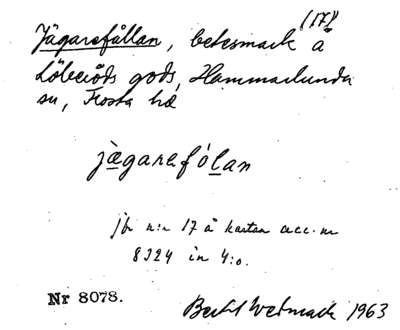 (17)
Jägarefållan, betesmark å
Löberöds gods, Hammarlunda
sn, Frosta hd
jægarefólan
jfr n:r 17 å kartan acc. nr
8324 in 4:o.
Nr 8078.
Bertil Wedmark 1963